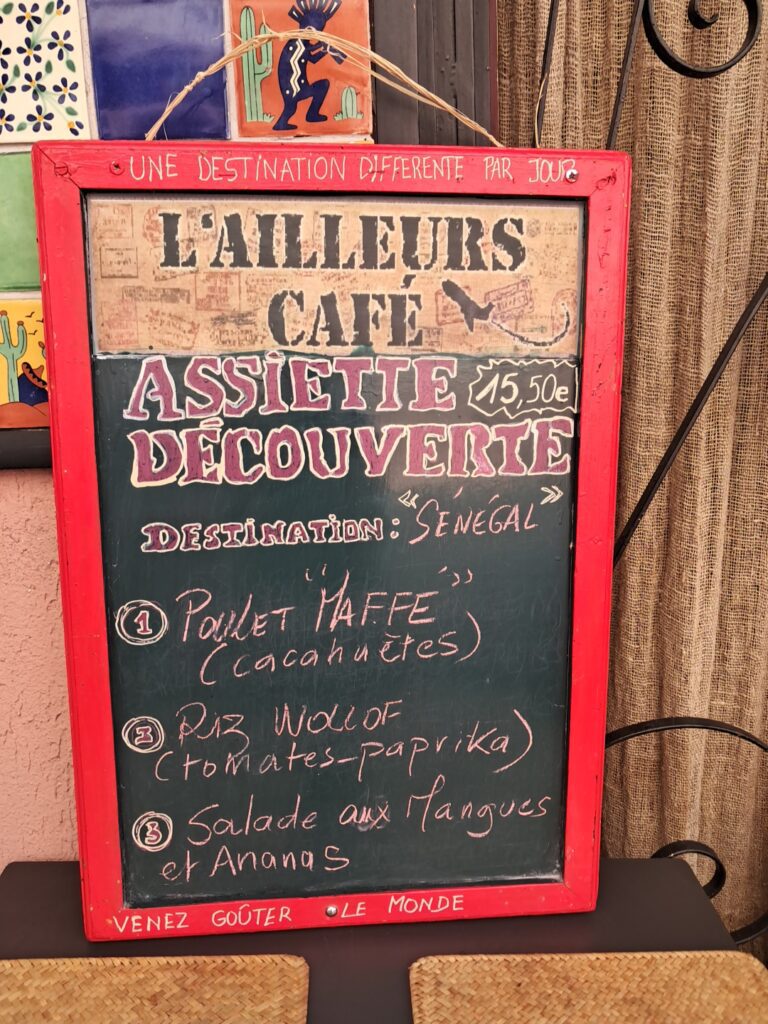 UNE DESTINATION DIFFERENTE PAR JOUR
L'AILLEURS
CAFÉ
ASSIETTE 15,50e
DÉCOUVERTE
DESTINATION : "SÉNÉGAL"
1 POULET "MAFFE"
(cacahuètes)
2 RIZ WOLLOF
(tomates-paprika)
3 Salade aux Mangues
et Ananas
VENEZ GOÛTER LE MONDE